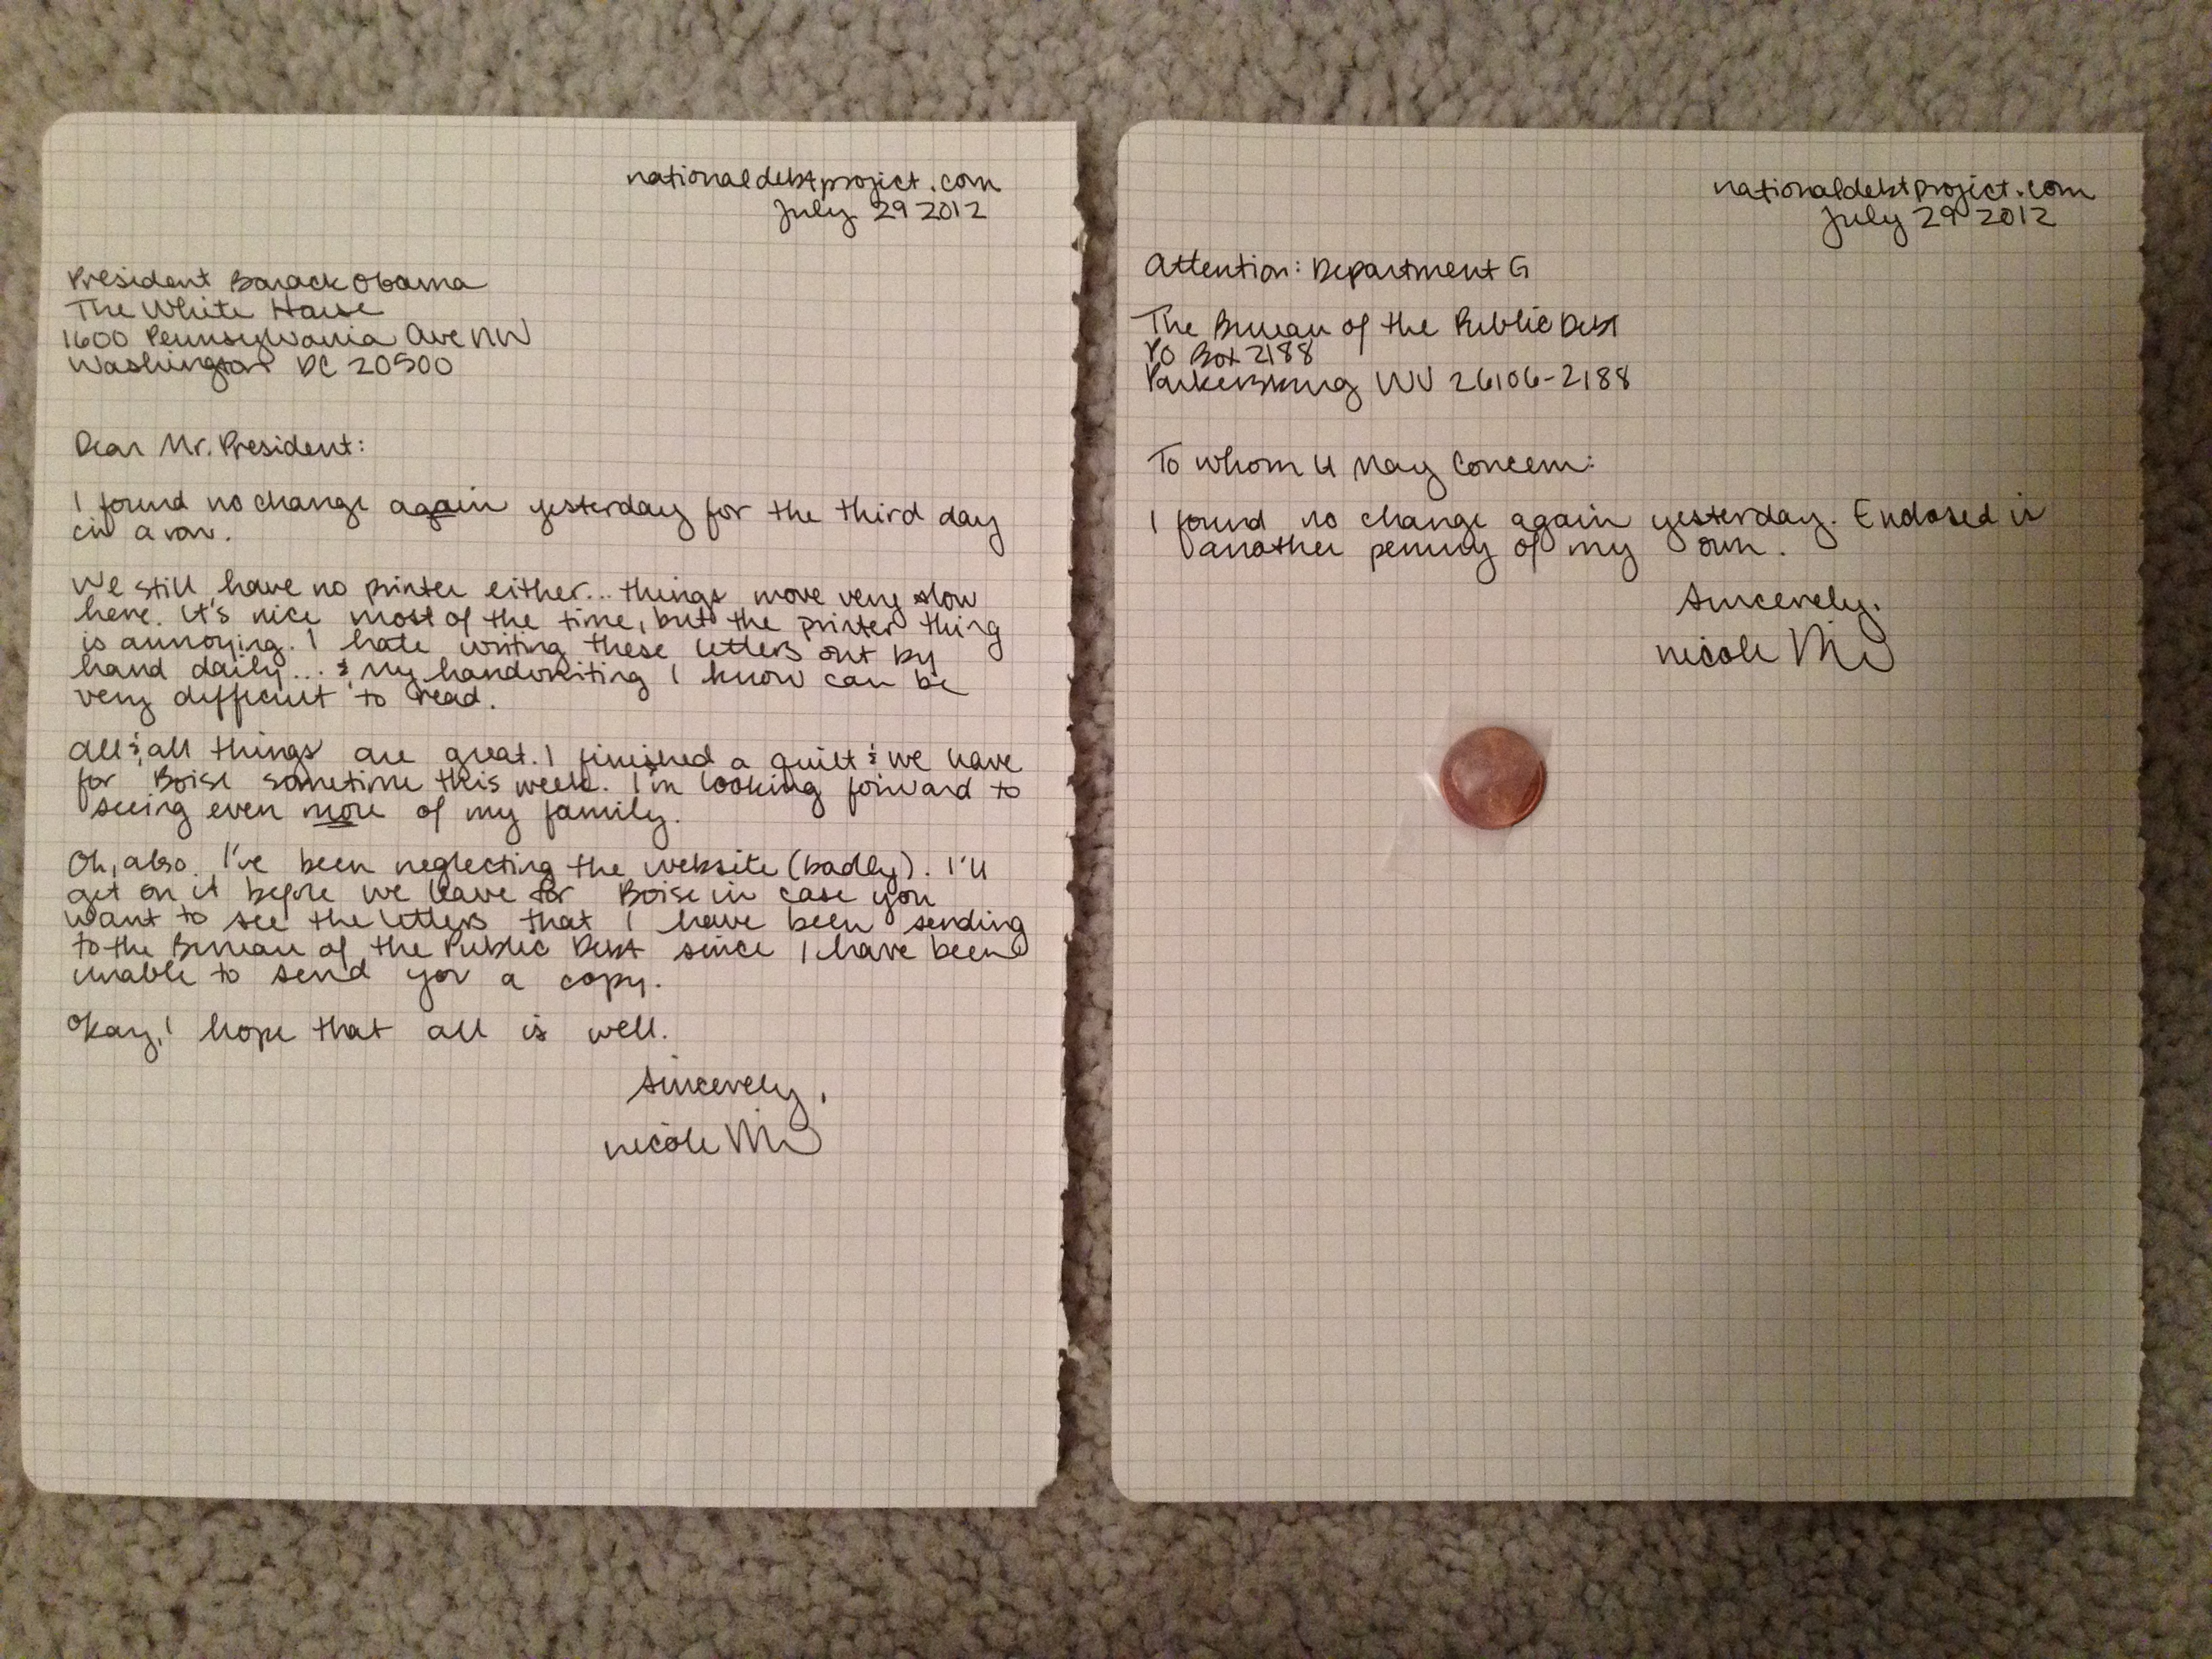 nationaldebtproject.com
July 29 2012
President Barack Obama
The White House
1600 Pennsylvania Ave NW
Washington DC 20500
Dear Mr. President:
I found no change again yesterday for the third day
in a row.
We still have no printer either... things move very slow
here. It's nice most of the time, but the printer thing
is annoying. I hate writing these letters out by
hand daily... & my handwriting I know can be
very difficult to read.
All & all things are great. I finished a quilt & we leave
for Boise sometime this week. I'm looking forward to
seeing even more of my family.
Oh, also. I've been neglecting the website (badly). I'll
get on it before we leave for Boise in case you
want to see the letters that I have been sending
to the Bureau of the Public Debt since I have been
unable to send you a copy.
Okay, I hope that all is well.
Sincerely,
nicole
nationaldebtproject.com
July 29 2012
Attention: Department G
The Bureau of the Public Debt
PO Box 2188
Parkersburg WV 26106-2188
To Whom It May Concern:
I found no change again yesterday. Enclosed is
another penny of my own.
Sincerely,
nicole